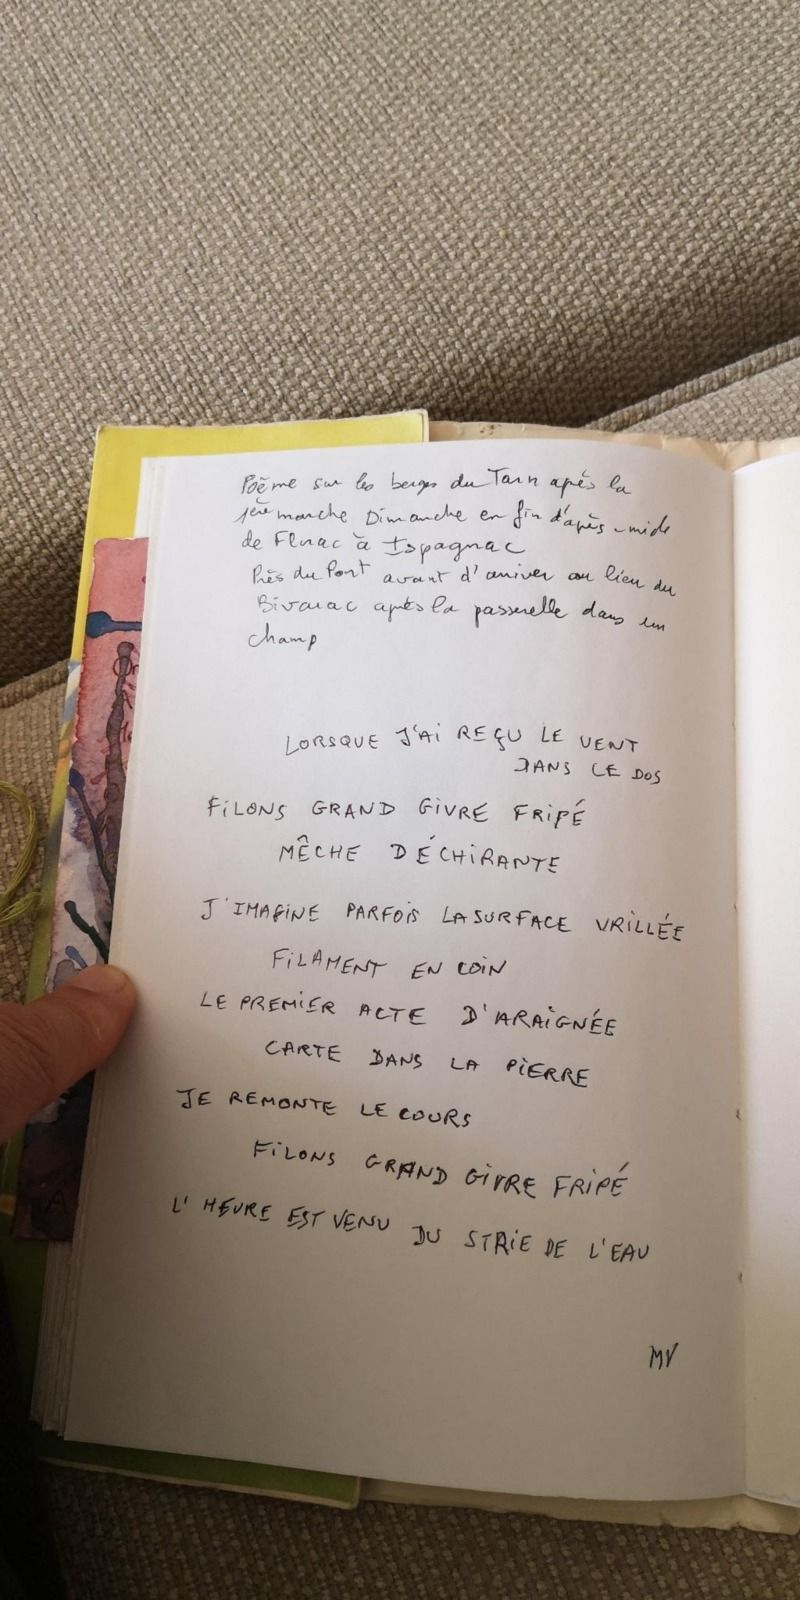 Poème sur les berges du Tarn après la
1ère marche Dimanche en fin d'après-midi
de Florac à Ispagnac
Près du Pont avant d'arriver au lieu du
Bivouac après la passerelle dans un
champ
LORSQUE J'AI REÇU LE VENT
DANS LE DOS
FILONS GRAND GIVRE FRIPÉ
MÊCHE DÉCHIRANTE
J'IMAGINE PARFOIS LA SURFACE VRILLÉE
FILAMENT EN COIN
LE PREMIER ACTE D'ARAIGNÉE
CARTE DANS LA PIERRE
JE REMONTE LE COURS
FILONS GRAND GIVRE FRIPÉ
L'HEURE EST VENU DU STRIE DE L'EAU
MV